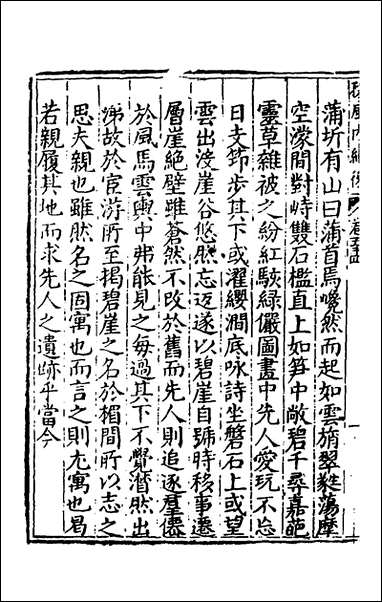 蒲圻有山曰蒲首焉巉然而起如雲旓翠蕤蕩摩
空濛間對峙雙石檻直上如笋中敞碧千尋嘉葩
靈草雜被之紛紅駭綠儼圖畫中先人愛玩不忘
日支筇步其下或濯纓澗底咏詩坐磐石上或望
雲出沒崖谷悠然忘返遂以碧崖自號時移事遷
層崖絕壁雖蒼然不改於舊而先人則追逐羣僊
於風馬雲輿中弗能見之每過其下不覺潸然出
涕故於宦游所至揭碧崖之名於楣間所以志之
思夫親也雖然名之固寓也而言之則尤寓也曷
若親履其地而求先人之遺跡乎當今